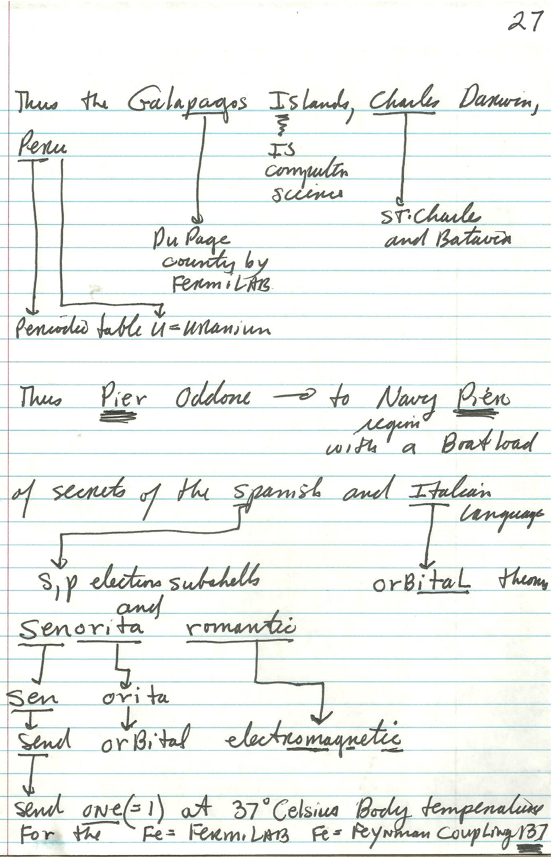 27
Thus the Galapagos Islands, Charles Darwin,
Peru
IS
computer
science
ST. Charles
and Batavia
Du Page
county by
FermiLAB
Periodic table U = uranium
Thus Pier Oddone → to Navy Pier
region
with a Boat load
of secrets of the Spanish and Italian
language
S, p electron subshells
and
orBitaL theory
Senorita romantic
Sen orita
Send orBital electromagnetic
Send ONE (=1) at 37° Celsius Body temperature
For the Fe = FermiLAB Fe = Feynman Coupling 137